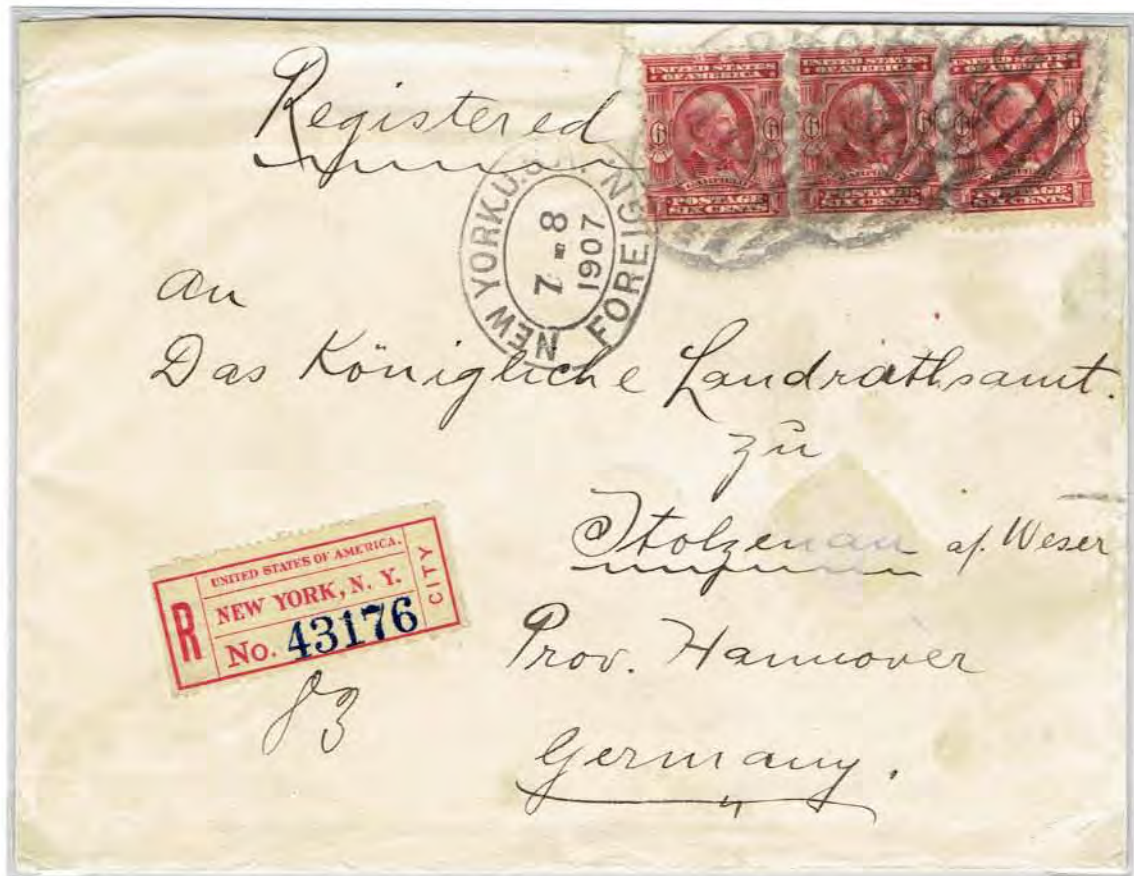 Registered
UNITED STATES
OF AMERICA
6 6
GARFIELD
POSTAGE
SIX CENTS
UNITED STATES
OF AMERICA
6 6
GARFIELD
POSTAGE
SIX CENTS
UNITED STATES
OF AMERICA
6 6
POSTAGE
SIX CENTS
NEW YORK U.S. FOREIGN
7-8
1907
an
Das Königliche Landrathsamt.
zu
Stolzenau a/. Weser
Prov. Hannover
Germany.
R
UNITED STATES OF AMERICA.
NEW YORK, N. Y.
No. 43176
CITY
83